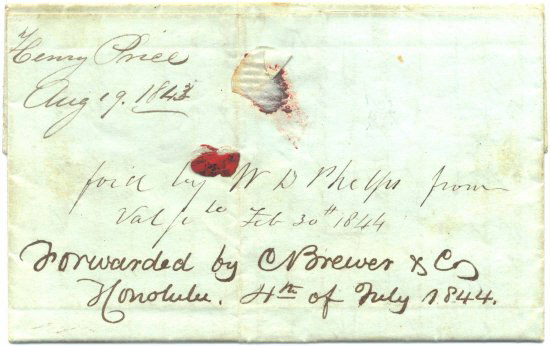 Henry Price
Aug 19. 1843
ford by W D Phelps from
Valpo Feb 30th 1844
Forwarded by C Brewer & Co
Honolulu. 4th of July 1844.